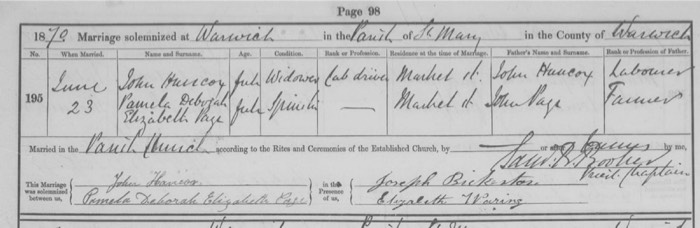 Page 98
1870 Marriage solemnized at Warwich in the Parish of St Mary in the County of Warwich
No. When Married. Name and Surname. Age. Condition. Rank or Profession. Residence at the time of Marriage. Father's Name and Surname. Rank or Profession of Father.
195 June 23 John Hancox full Widower Cab driver Market st. John Hancox Labourer
Pamela Deborah Elizabeth Page full Spinster — Market st John Page Farmer
Married in the Parish Church according to the Rites and Ceremonies of the Established Church, by or after Banns by me,
This Marriage was solemnized between us, John Hancox Pamela Deborah Elizabeth Page in the Presence of us, Joseph Bickerston Elizabeth Waring